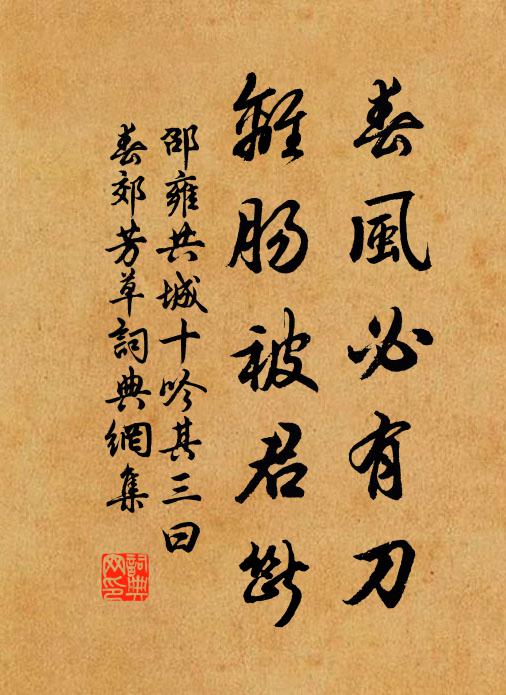 春風必有刀
離腸被君斷
邵雍共城十吟其三曰
春郊芳草詞典網集
詞典
网印